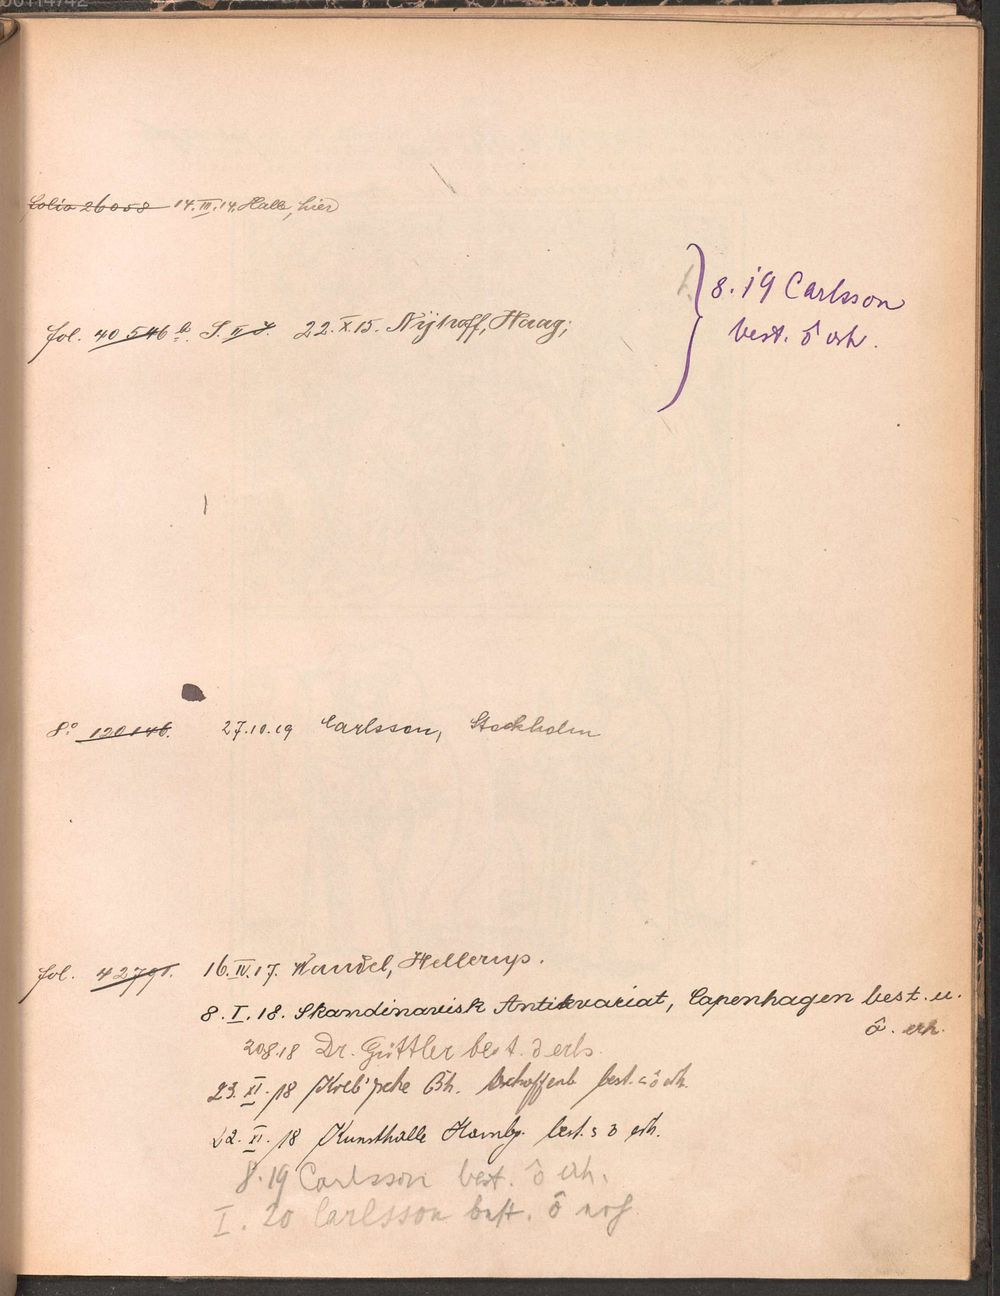 folio 26058 14.III.14. Halle, hier
8.19 Carlsson
best. ô erh.
fol. 40546 b. S. II 22.X.15. Nijhoff, Haag;
8° 120146. 27.10.19 Carlsson, Stockholm
fol. 42791. 16.IV.17. Wandel, Hellerup.
8.I.18. Skandinavisk Antikvariat, Copenhagen best. u.
ô. erh.
20.8.18 Dr. Güttler best. erh.
23.XI.18 Bh. best. ô erh.
22.XI.18 Kunsthalle Hambg. best. erh.
8.19 Carlsson best. ô erh.
I.20 Carlsson best. ô erh.